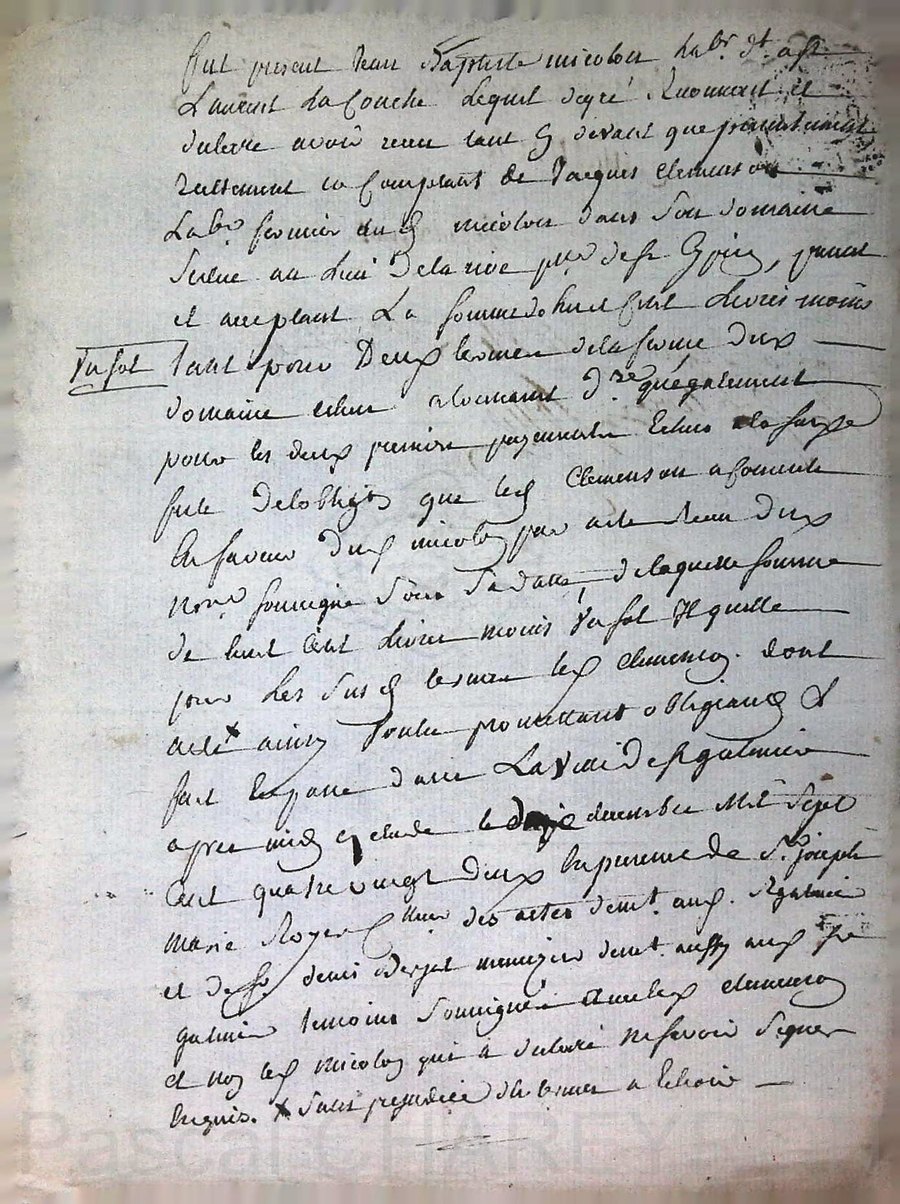 fut present Jean Baptiste micolon lab.r d.t a st
Laurent La Conche lequel de gré Reconnait et
declare avoir receu tant cy devant que presentement
reellement en Comptant de Jacques Clemenson
Lab.r fermier dud micolon dans son domaine
Situé au Lieu de la rive p.sse de st Cyprien, present
et acceptant La somme de huit Cent Livres moins
un sol
tant pour Deux termes de la ferme dud
domaine echu
pour les deux premiers payements Echus
que led Clemenson a consenti
En faveur dud micolon par acte Receu dud
no.re soussigné Sous Sa datte, de laquelle somme
de huit Cent Livres moins un sol Il quitte
pour Les susd termes led Clemenson. dont
acte x ainsy voulu promettant obligeant &
fait Et passé dans La ville de st galmier
apres midy etude le decembre Mil Sept
Cent quatre vingt deux En presence de S.r joseph
marie Royer des actes dem.t aud. St galmier
et de s.r denis menuizier dem.t aussy aud st
galmier temoins Soussignés avec led Clemenson
et non led micolon qui a declaré ne savoir Signer
Enquis. x Sans prejudice du terme a Echoir
Pascal CHAREYRE